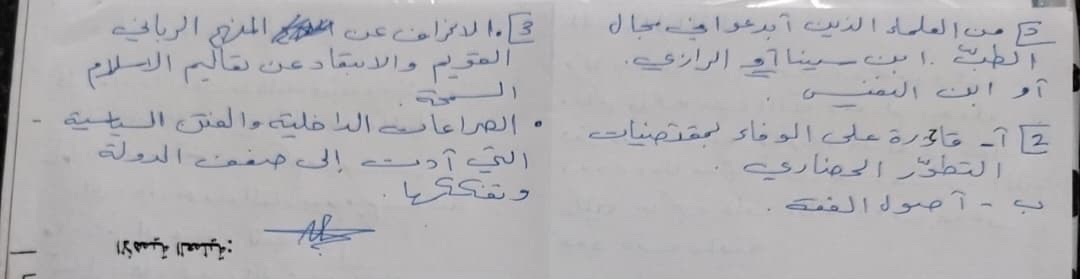 1] من العلماء الذين أبدعوا في مجال
الطبّ . ابن سينا أو الرازي .
أو ابن النفيس .
2] أ- قادرة على الوفاء بمقتضيات
التطوّر الحضاري .
ب - أصول الفقه .
3] • الانحراف عن المنهج الرباني
القويم والابتعاد عن تعاليم الاسلام
السمحة .
• الصراعات الداخلية والفتن السياسية -
التي أدت إلى ضعف الدولة
وتفككها .
الأهمية العملية: